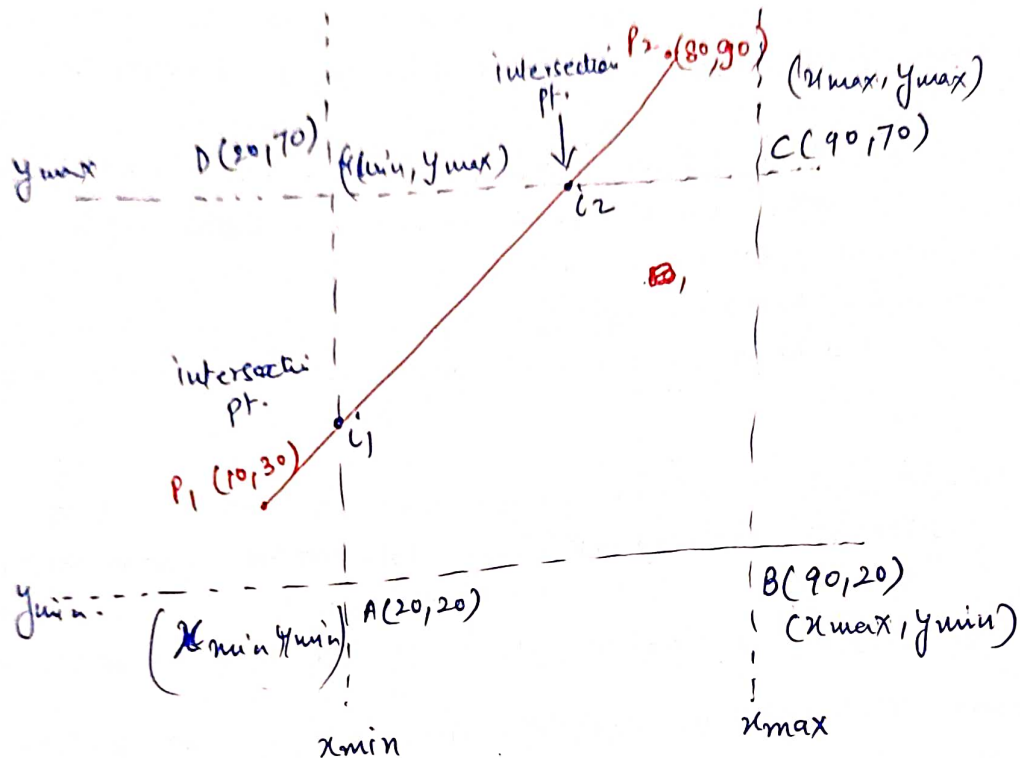 intersection P2 (80,90)
pt.
(xmax, ymax)
ymax D(20,70) (xmin, ymax) C(90,70)
i2
intersecti
pt.
i1
P1 (10,30)
ymin
A(20,20) B(90,20)
(xmin ymin) (xmax, ymin)
xmin xmax